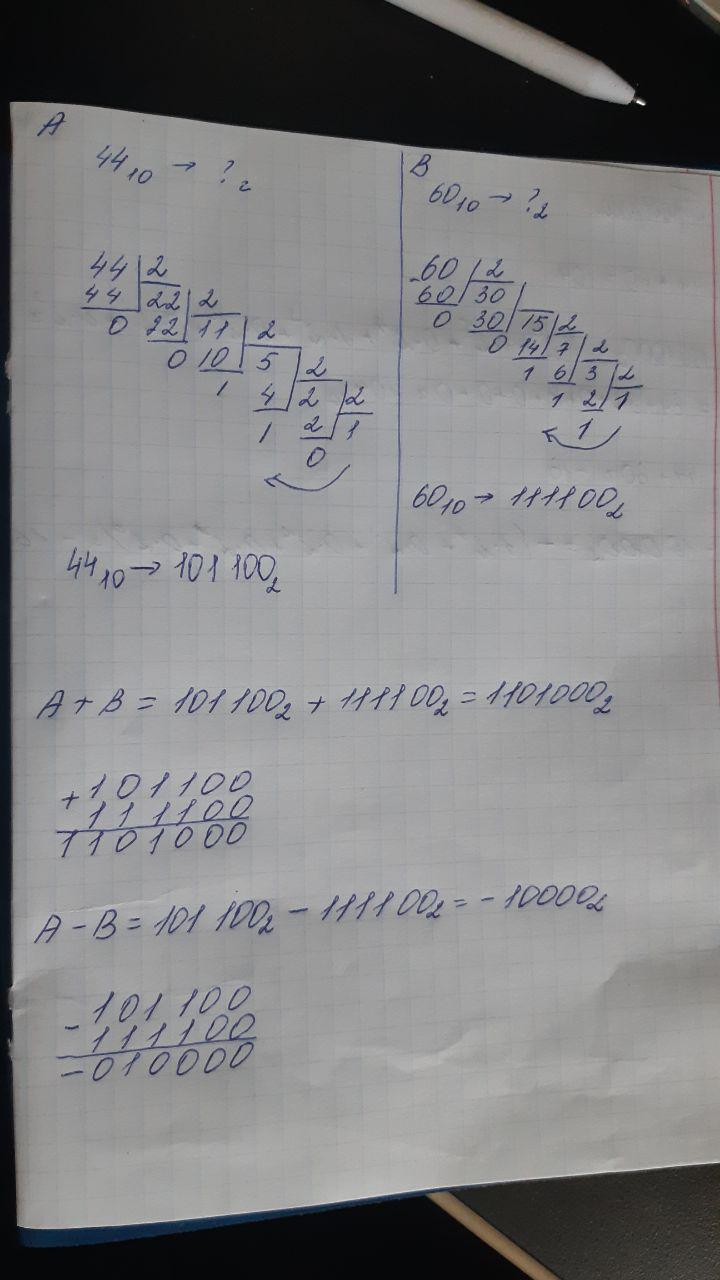 A
44₁₀ → ?₂
44 2
44 22 2
0 22 11 2
0 10 5 2
1 4 2 2
1 2 1
0
44₁₀ → 101100₂
B
60₁₀ → ?₂
-60 2
60 30
0 30 15 2
0 14 7 2
1 6 3 2
1 2 1
1
60₁₀ → 111100₂
A + B = 101100₂ + 111100₂ = 1101000₂
+101100
111100
1101000
A - B = 101100₂ - 111100₂ = -10000₂
-101100
111100
-010000